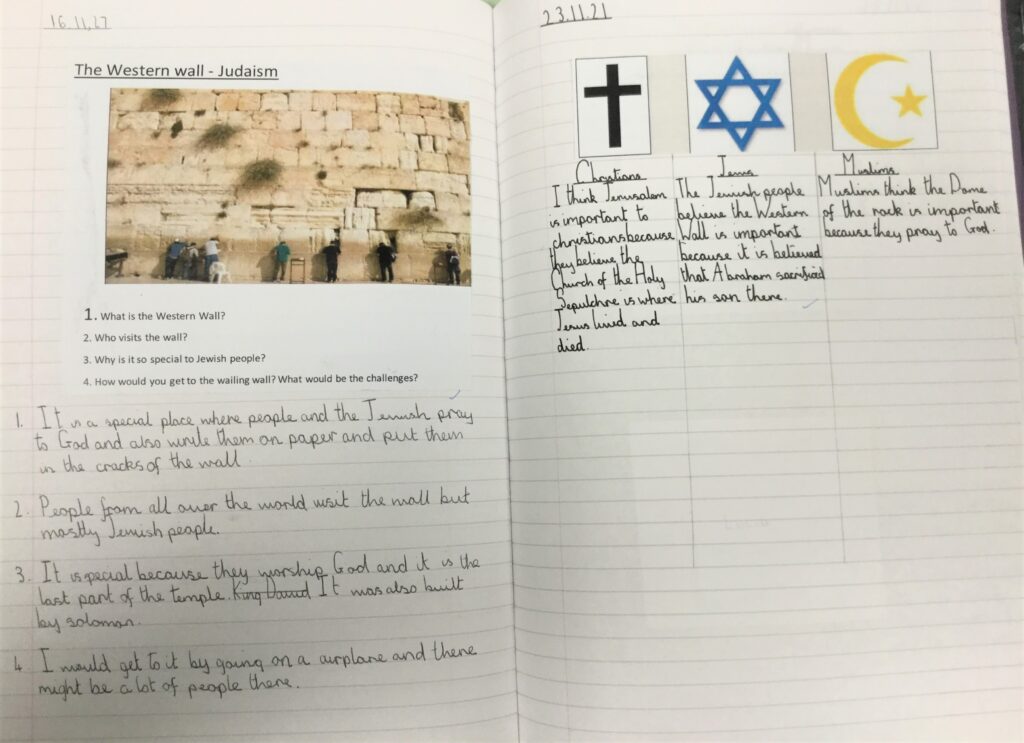 16.11.27
The Western wall - Judaism
1. What is the Western Wall?
2. Who visits the wall?
3. Why is it so special to Jewish people?
4. How would you get to the wailing wall? What would be the challenges?
1. It is a special place where people and the Jewish pray
to God and also write them on paper and put them
in the cracks of the wall.
2. People from all over the world visit the wall but
mostly Jewish people.
3. It is special because they worship God and it is the
last part of the temple. King David It was also built
by solomon.
4. I would get to it by going on a airplane and there
might be a lot of people there.
23.11.21
Christians
I think Jerusalam
is important to
christians because
they believe the
Church of the Holy
Sepulchre is where
Jesus lived and
died.
Jews
The Jewish people
believe the Western
Wall is important
because it is believed
that Abraham sacrificed
his son there.
Muslims
Muslims think the Dome
of the rock is important
because they pray to God.